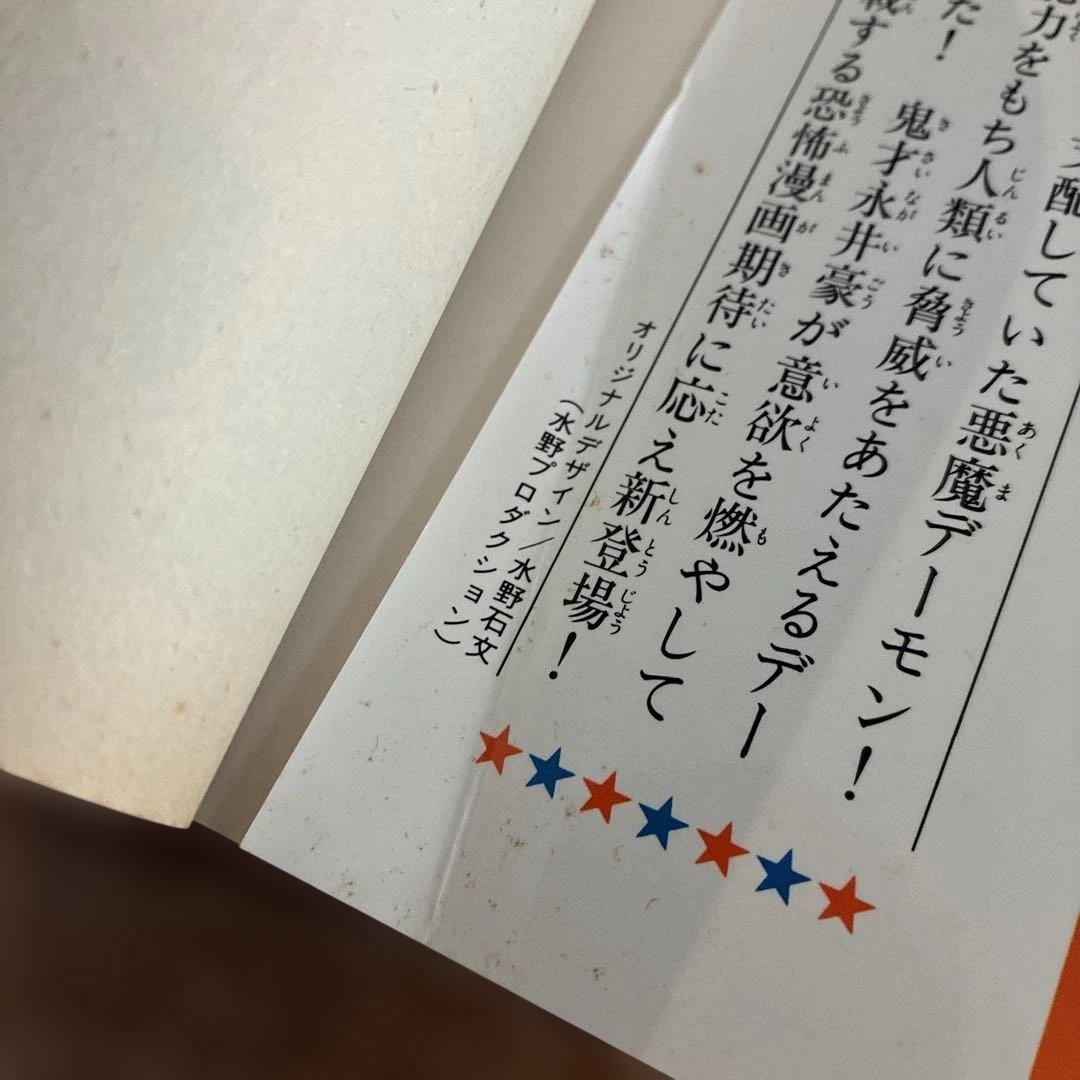 配していた悪魔デーモン!
力をもち人類に脅威をあたえるデー
た! 鬼才永井豪が意欲を燃やして
する恐怖漫画期待に応え新登場!
オリジナルデザイン/水野石文
(水野プロダクション)